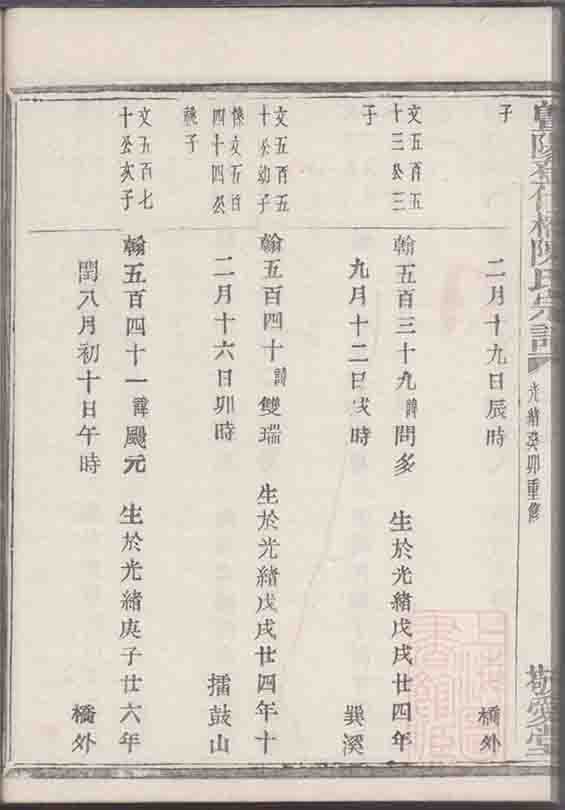 暨陽孝仁橋陳氏宗譜
光緒癸卯重修
敬愛堂
子
二月十九日辰時
橋外
文五百五
十三公三
子
翰五百三十九諱問多
生於光緒戊戌廿四年
九月十二日戌時
巽溪
文五百五
十公幼子
文五百
四十四公
翰五百四十諱雙瑞
生於光緒戊戌廿四年十
二月十六日卯時
擂鼓山
文五百七
十公亥子
翰五百四十一諱颺元
生於光緒庚子廿六年
閏八月初十日午時
橋外
上海圖書館藏